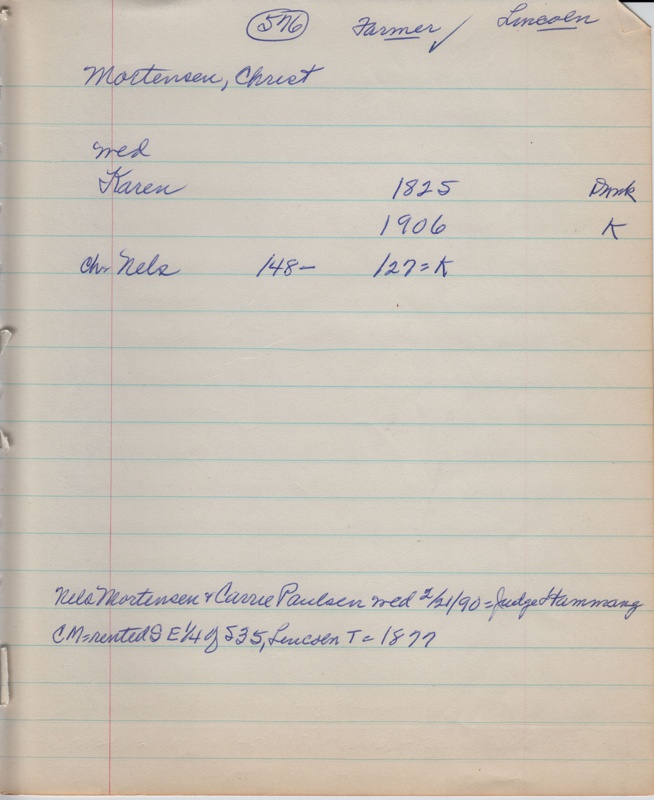 576 Farmer ✓ Lincoln
Mortensen, Christ
wed
Karen 1825 Dmk
1906 K
Ch- Nels 148- 127=K
Nels Mortensen & Carrie Paulsen wed 2/21/90=Judge Hammang
CM=rented SE 1/4 of S35, Lincoln T= 1877